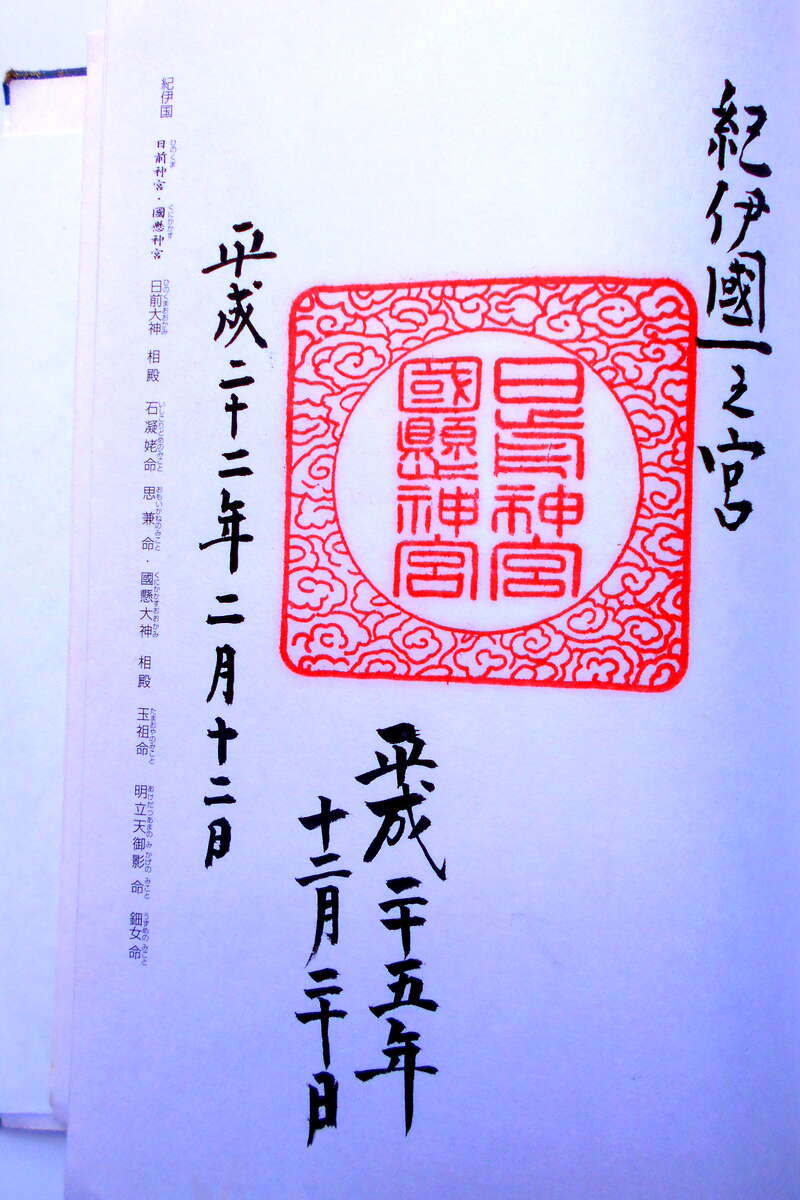 紀伊國一之宮
日前神宮
國懸神宮
平成二十五年
十二月二十日
平成二十二年二月十二日
ひのくま くにかかす ひのくまおおかみ いしこりどめのみこと おもいかねのみこと くにかかすおおかみ たまおやのみこと あけたつあまのみかげのみこと うずめのみこと
紀伊国 日前神宮・國懸神宮 日前大神 相殿 石凝姥命 思兼命・國懸大神 相殿 玉祖命 明立天御影命 鈿女命